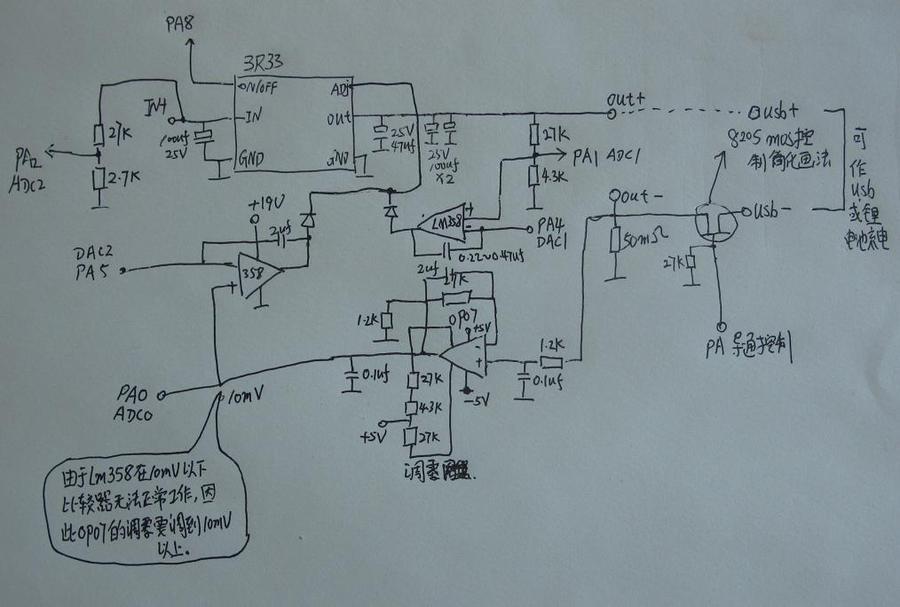 PA8
3R33
ON/OFF
Adj
IN+
IN
out
GND
GND
100uf
25V
25V
47uf
25V
100uf
X2
27K
PA12
ADC2
2.7K
27K
PA1 ADC1
4.3K
out+
usb+
8205 mos控
制简化画法
可
作
usb
或锂
+19V
2uf
LM358
PA4
DAC1
0.22~0.47uf
DAC2
PA5
358
+
+
-
out-
usb-
50mΩ
27K
PA 导通控制
2uf
27K
1.2K
OP07
+5V
-
+
-5V
1.2K
0.1uf
0.1uf
27K
4.3K
+5V
27K
PA0
ADC0
10mV
由于Lm358在10mV以下
比较器无法正常工作,因
此OP07的调零要调到10mV
以上.